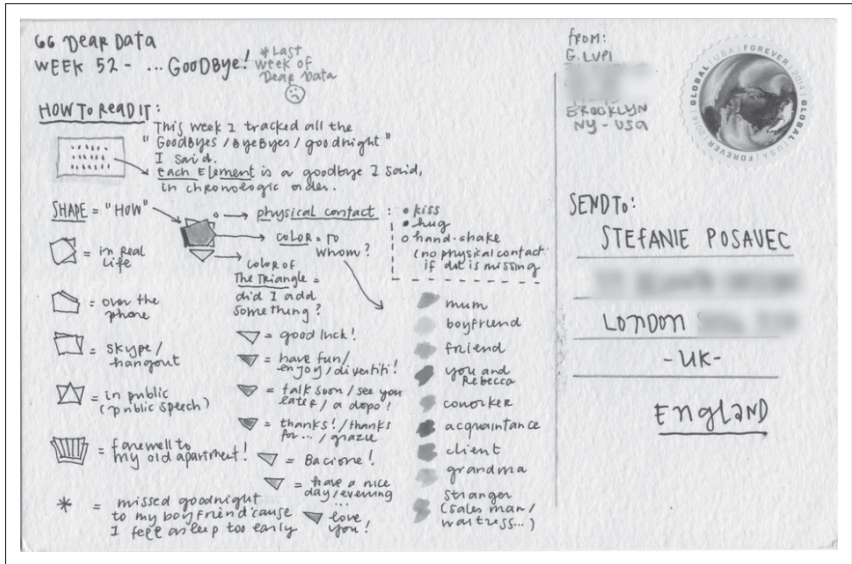 GG Dear Data
WEEK 52 - ... GOODBYE!
* Last
week of
Dear Data
HOW TO READ IT:
This week I tracked all the
"Goodbyes / byebyes / goodnight"
I said.
Each Element is a goodbye I said,
in chronologic order.
SHAPE = "HOW"
= in real
life
= over the
phone
= skype /
hangout
= in public
(public speech)
= farewell to
my old apartment!
* = missed goodnight
to my boyfriend 'cause
I fell asleep too early
physical contact :
• kiss
• hug
o hand-shake
(no physical contact
if dot is missing
COLOR = TO
WHOM?
COLOR OF
The Triangle =
did I add
something?
= good luck!
= have fun/
enjoy/divertiti!
= talk soon / see you
later / a dopo!
= thanks! / thanks
for... / grazie
= Bacione!
= have a nice
day/evening
...
love
you!
mum
boyfriend
friend
you and
Rebecca
coworker
acquaintance
client
grandma
stranger
(sales man/
waitress...)
FROM:
G. LUPI
BROOKLYN
NY - USA
GLOBAL | USA | FOREVER | 2014 | GLOBAL | USA | FOREVER | 2014
SEND TO:
STEFANIE POSAVEC
LONDON
- UK -
ENGLAND